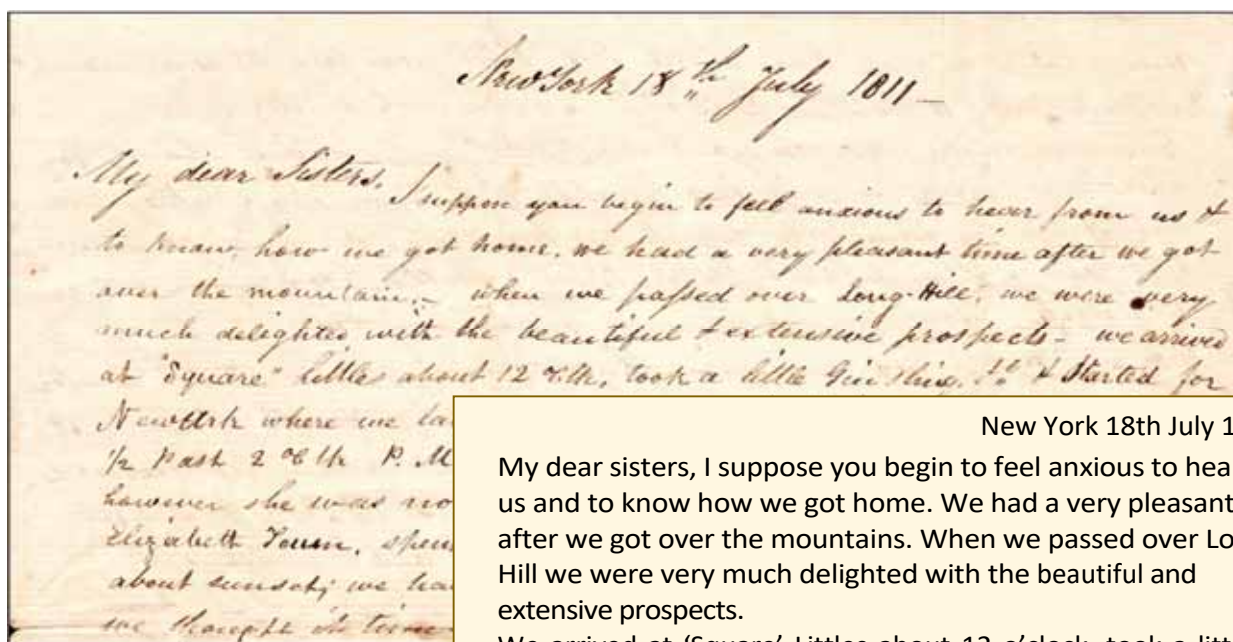 New York 18th July 1811 –
My dear Sisters, I suppose you begin to feel anxious to hear from us &
to know how we got home. we had a very pleasant time after we got
over the mountain. – when we passed over Long-Hill, we were very
much delighted with the beautiful & extensive prospects – we arrived
at "Square" Littles about 12 oClk, took a little Gin Sling, & Started for
where we
1/2 Past 2 oClk P. M
however she was
Elizabeth Town,
about sunset; we
we thought it time
New York 18th July 1
My dear sisters, I suppose you begin to feel anxious to hea
us and to know how we got home. We had a very pleasant
after we got over the mountains. When we passed over Lo
Hill we were very much delighted with the beautiful and
extensive prospects.
We arrived at 'Square' Littles about 12 o'clock, took a litt